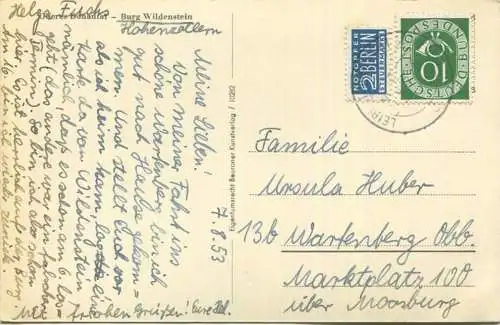 Oberes Donautal – Burg Wildenstein
Hohenzollern
7.8.53
Meine Lieben!
Von meiner Fahrt ins
schöne Wartenberg bin ich
gut nach Hause gekom-
men. Und stellt Euch vor
als ich heim kam, lag eine
Karte da von Wildenstein
nämlich, dass es schon am 6. los-
geht, das andere war ein falscher
Termin). So bin ich also schon
hier. Es ist herrlich auf der Burg.
Am 16. bin ich wieder zurück.
Mit frohen Grüßen! Eure Hel.
Helga Fisch
Eigentumsrecht Beuroner Kunstverlag / 11022
NOTOPFER
2 BERLIN
STEUERMARKE
DEUTSCHE BUNDESPOST
10
Familie
Ursula Huber
13b Wartenberg Obb.
Marktplatz 100
über Moosburg